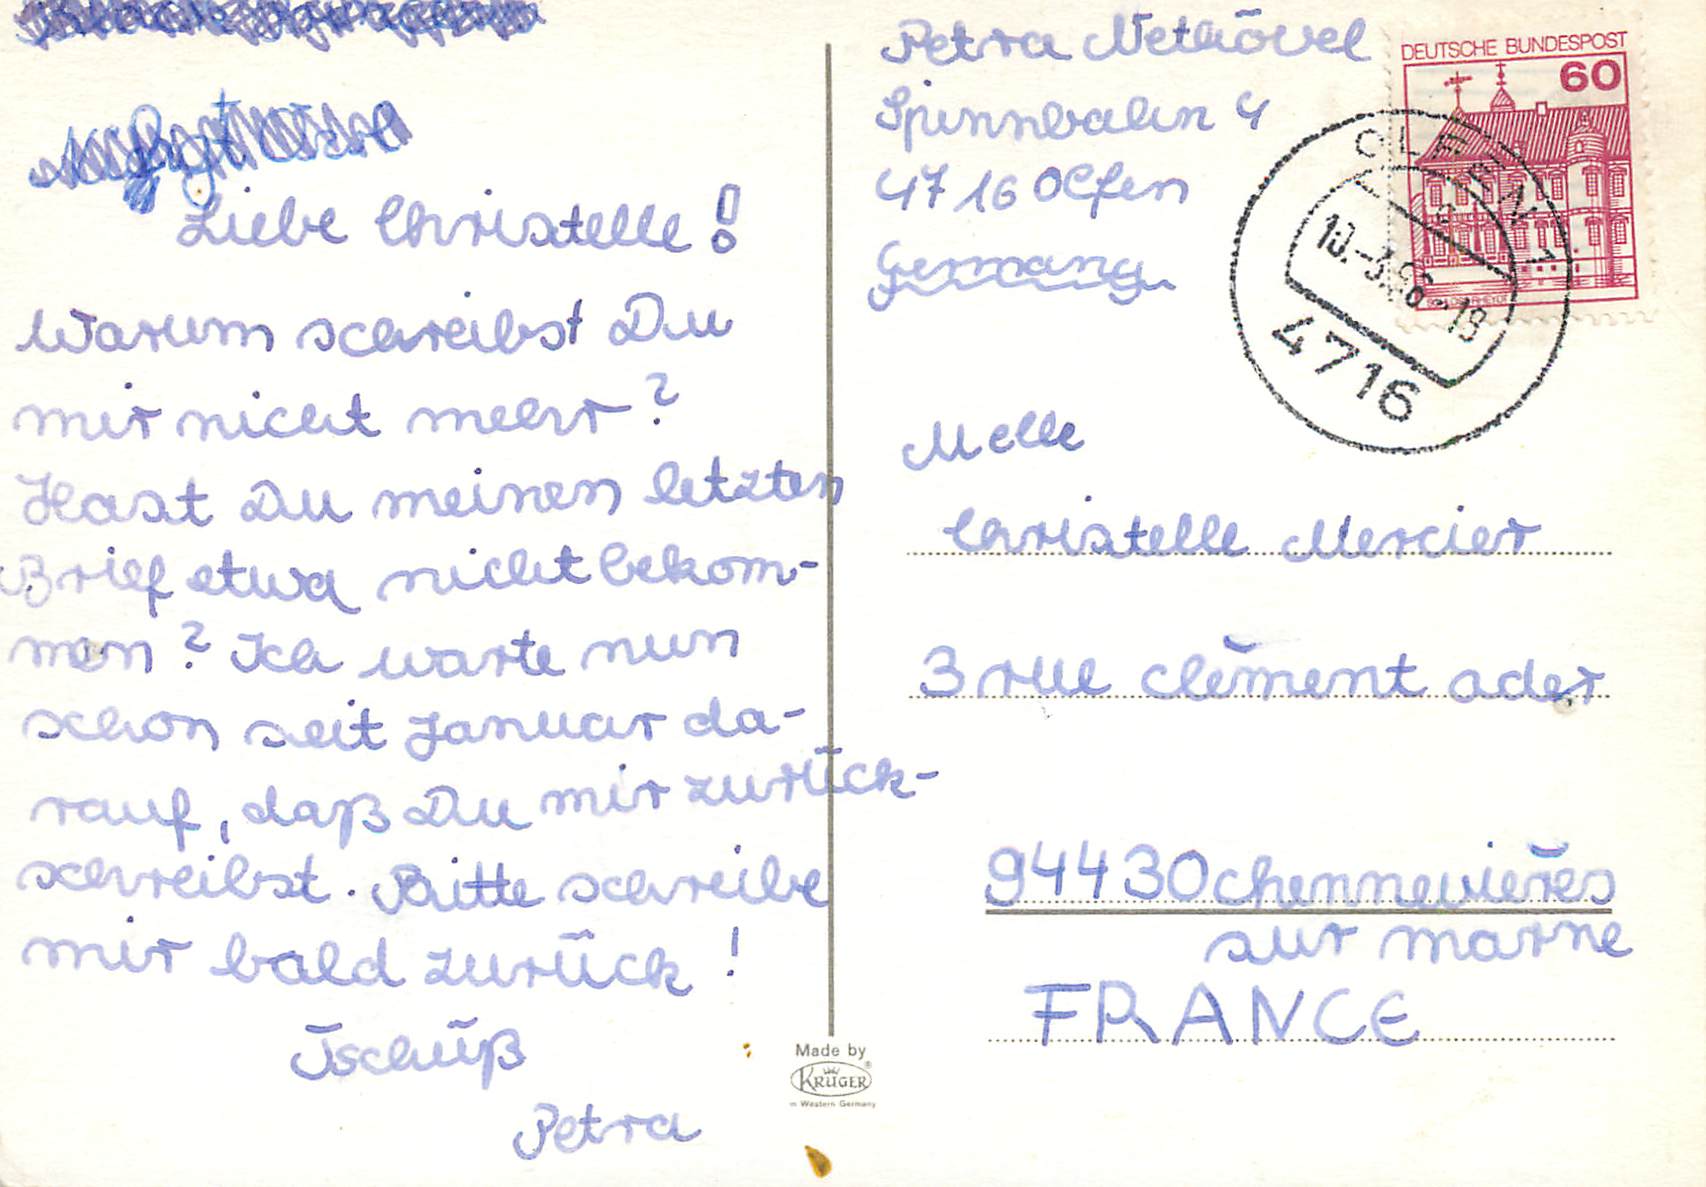 Liebe Christelle!
Warum schreibst Du
mir nicht mehr?
Hast Du meinen letzten
Brief etwa nicht bekom-
men? Ich warte nun
schon seit Januar da-
rauf, daß Du mir zurück-
schreibst. Bitte schreibe
mir bald zurück!
Tschüß
Petra
Petra
Spinnbahn 4
4716 Olfen
Germany
DEUTSCHE BUNDESPOST
60
OLFEN 1
10.-3.86-18
4716
Melle
Christelle Mercier
3 rue clément ader
94430 chennevières
sur marne
FRANCE
Made by
KRÜGER
in Western Germany